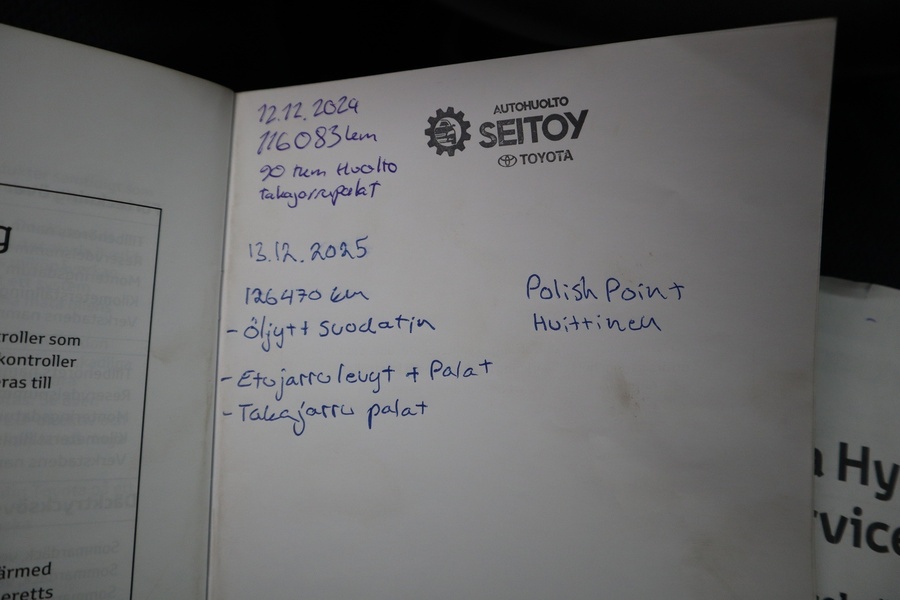 12.12.2024
116083 km
90 tkm Huolto
takajarrupalat
AUTOHUOLTO
SEITOY
TOYOTA
13.12.2025
126470 km
- Öljyt+ suodatin
- Etujarrulevyt + Palat
- Takajarru palat
Polish Point
Huittinen
g
roller som
kontroller
ras till
ärmed
eretts
a Hy
rvice